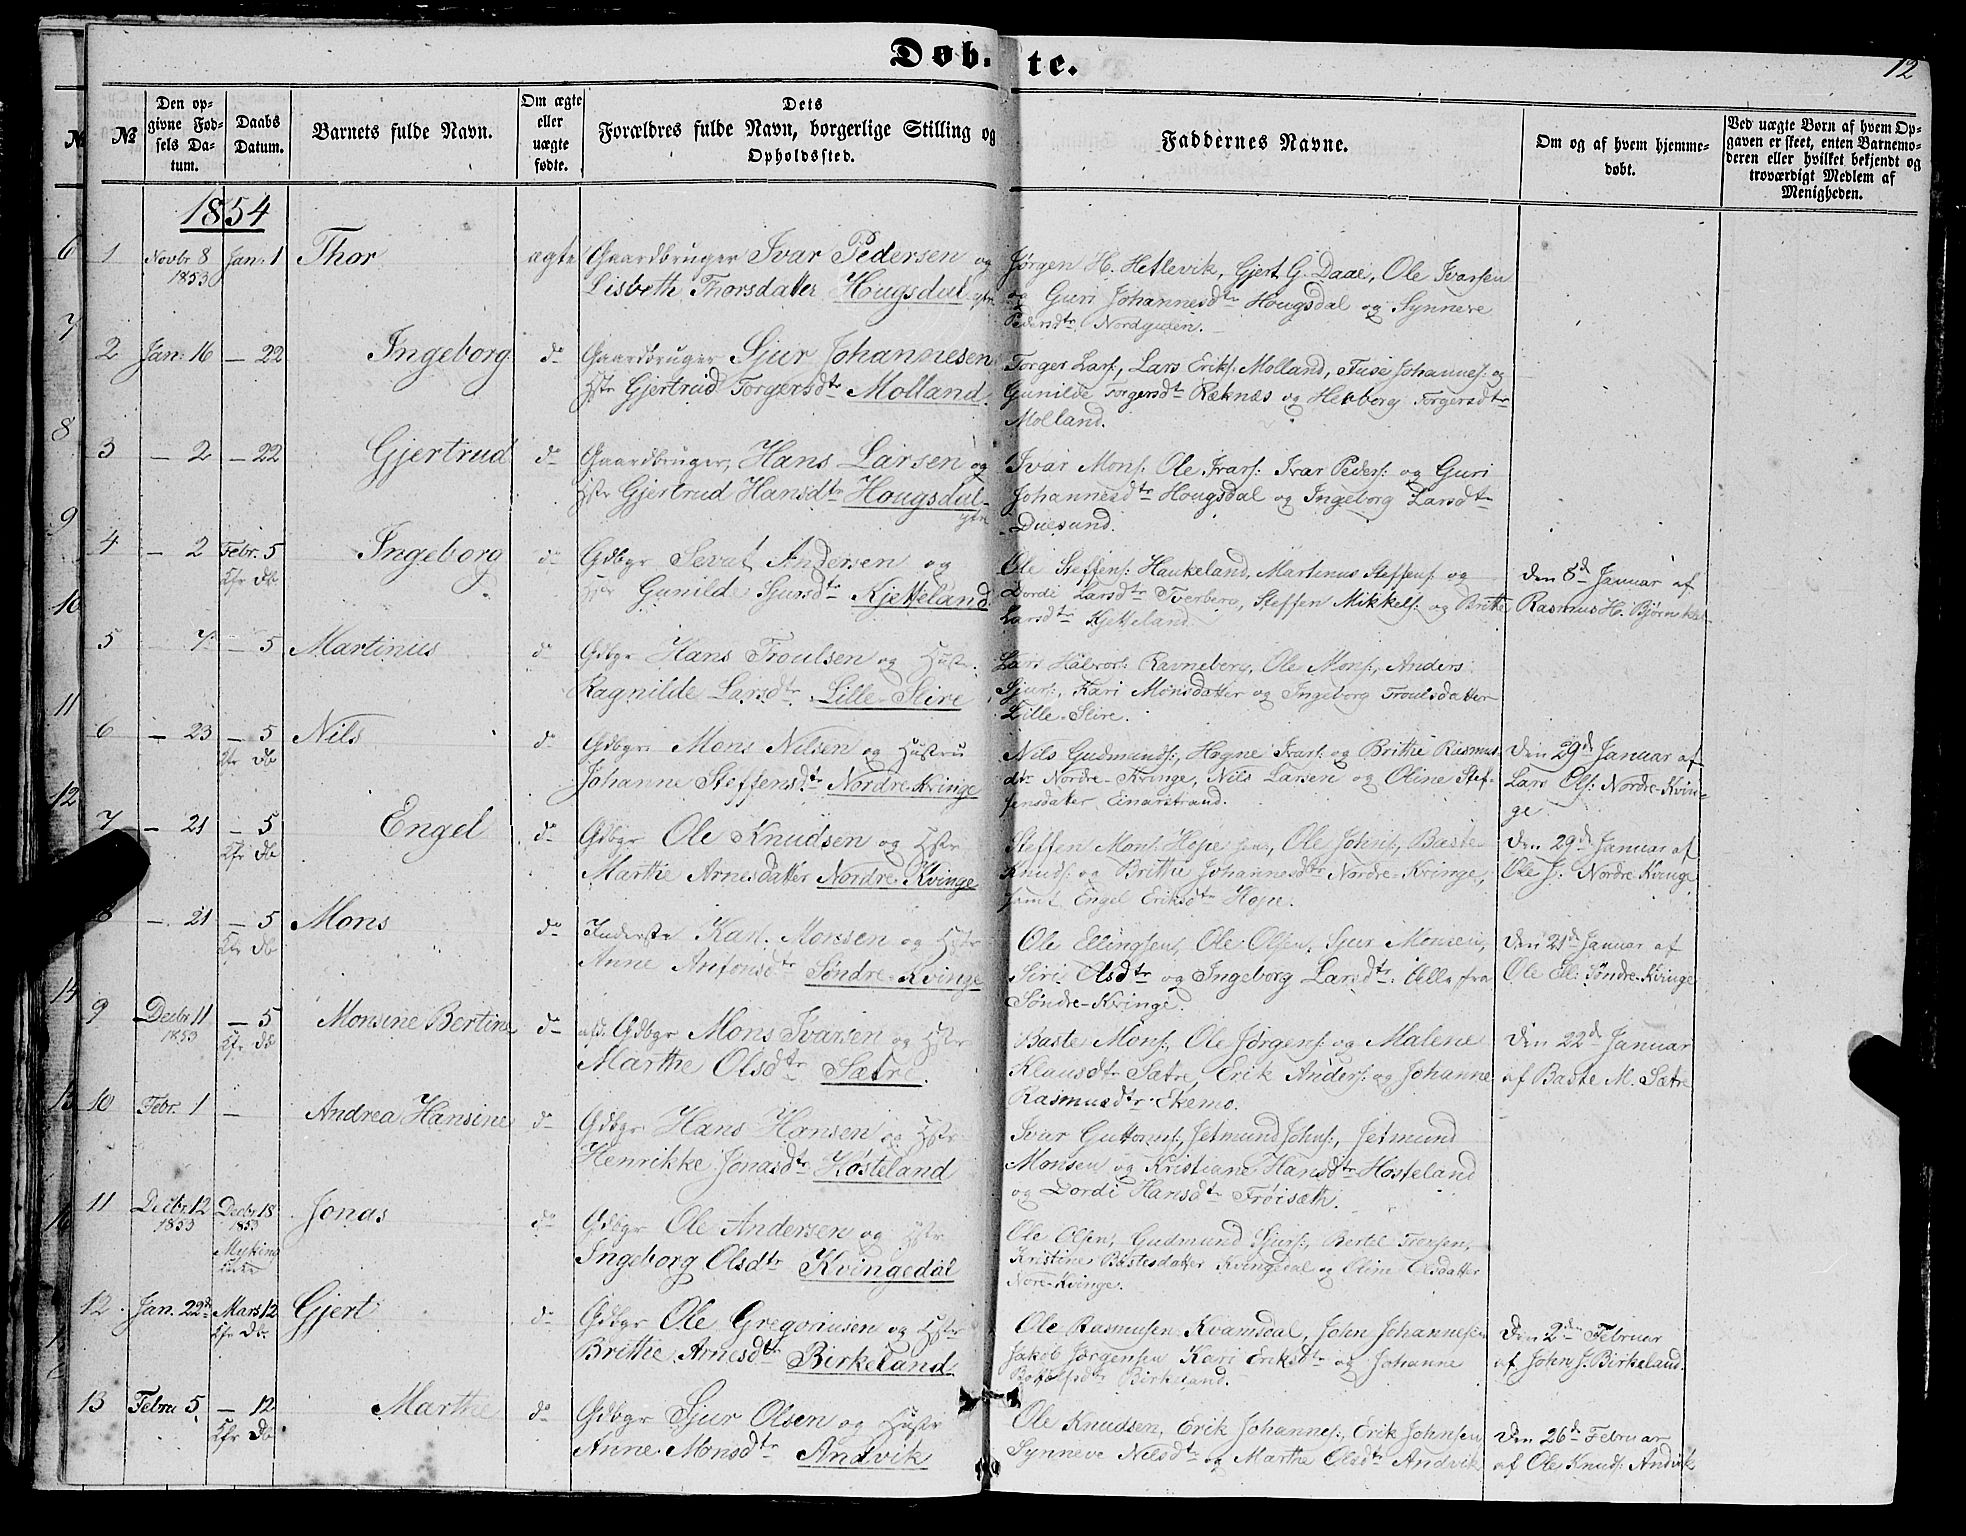 Døb- te.
12
№
Den op-
givne Fød-
sels Da-
tum.
Daabs
Datum.
Barnets fulde Navn.
Om ægte
eller
uægte
fødte.
Dets
Forældres fulde Navn, borgerlige Stilling og
Opholdssted.
Faddernes Navne.
Om og af hvem hjemme-
døbt.
Ved uægte Børn af hvem Op-
gaven er skeet, enten Barnemo-
deren eller hvilket bekjendt og
troværdigt Medlem af
Menigheden.
1854
1 Novbr 8 Jan: 1 Thor ægte Gaardbruger Ivar Pedersen og
1853 Lisbeth Thorsdatter Hougsdal
Jørgen H. Hetlevik, Gjert G. Daae, Ole Ivarsen
og Guri Johannesdtr Hougsdal og Synneve
Pedersdtr Nordgulen.
2 Jan: 16 — 22 Ingeborg do Gaardbruger Sjur Johannesen
Hstr Gjertrud Torgersdtr Molland.
Torger Lars:, Lars Eriks: Molland, Fuse Johannes: og
Gunilde Torgersdtr Ræknæs og Herborg Torgersdtr
Molland.
3 — 2 — 22 Gjertrud do Gaardbruger, Hans Larsen og
Hstr Gjertrud Hansdtr Hougsdal
Ivar Mons: Ole Ivars: Ivar Peders: og Guri
Johannesdtr Hougsdal og Ingeborg Larsdtr
Duesund.
4 — 2 Febr. 5 Ingeborg do Gdbgr Sevat Andersen og
Cfr Db Hstr Gunilde Sjursdtr Kjetteland.
Ole Steffens: Haukeland, Martinus Steffens: og
Dordi Larsdtr Tverberg, Steffen Mikkels: og Brithe
Larsdtr Kjetteland.
Den 8d Januar af
Rasmus H. Bjørn
5 — 7 — 5 Martinus do Gdbgr Hans Troulsen og Hstr.
Ragnilde Larsdtr Lille-Slire
Lars Halvors: Ravneberg, Ole Mons:, Anders
Sjurs:, Kari Monsdatter og Ingeborg Troulsdatter
Lille-Slire.
6 — 23 — 5 Nils do Gdbgr. Mons Nilsen og Hustru
Cfr Db Johanne Steffensdtr Nordre-Kvinge
Nils Gudmunds:, Hogne Ivars: og Brithe Rasmus-
dtr Nordre-Kvinge, Nils Larsen og Oline Stef-
fensdatter Einarstrand.
Den 29d Januar af
Lars Ols: Nordre-Kvin-
ge.
7 — 21 — 5 Engel do Gdbgr Ole Knudsen og Hstr
Cfr Db Marthe Arnesdatter Nordre-Kvinge
Steffen Mons: Hope Ole Johns:, Baste
Knuds: og Brithe Johannesdtr Nordre-Kvinge,
samt Engel Eriksdtr Hope.
Den 29d Januar af
Ole J. Nordre-Kvinge
8 — 21 — 5 Mons do Inderste Karl Monsen og Hstr
Cfr Db Anne Anfonsdtr Søndre-Kvinge
Ole Ellingsen, Ole Olsen, Sjur Monsen,
Siri Olsdtr og Ingeborg Larsdtr: Alle fra
Søndre-Kvinge.
Den 21d Januar af
Ole El: Søndre-Kvinge
9 Decbr 11 — 5 Monsine Bertine do afd. Gdbgr Mons Ivarsen og Hstr
1853 Cfr Db Marthe Olsdtr Sætre.
Baste Mons:, Ole Jørgens: og Malene
Klausdtr Sætre, Erik Anders: og Johanne
Rasmusdtr Ekemo.
Den 22d Januar
af Baste M. Sætre
10 Febr. 1 — Andrea Hansine do Gdbgr Hans Hansen og Hstr
Henrikke Jonasdtr Hosteland
Ivar Guttorms:, Jetmund Johns:, Jetmund
Monsen og Kristiane Hansdtr Hosteland
og Dordi Hansdtr Frøisæth.
11 Decbr. 12 Decbr. 18 Jonas do Gdbgr Ole Andersen og Hstr
1853 1853 Ingeborg Olsdtr Kvingedal
Myking
Kirke
Ole Olsen, Gudmund Sjurs:, Bertel
Kristine Bastesdatter Kvingedal og Oline Olsdatter
Nore-Kvinge.
12. Jan. 22d Mars 12 Gjert do Gdbgr Ole Gregoriusen og Hstr
Cfr Db. Brithe Arnesdtr Birkeland.
Ole Rasmussen Kvamsdal, John Johannesen
Jakob Jørgensen Kari Eriksdtr og Johanne
Birkeland.
Den 2den Februar
af John J. Birkeland.
13 Febru 5 — 12 Marthe do Gdbgr Sjur Olsen og Hustr
Cfr Db Anne Monsdtr Andvik
Ole Knudsen, Erik Johannes:, Erik Johnsen
Synneve Nilsdtr og Marthe Olsdtr Andvik
Den 26d Februar
af Ole Knuds: Andvik